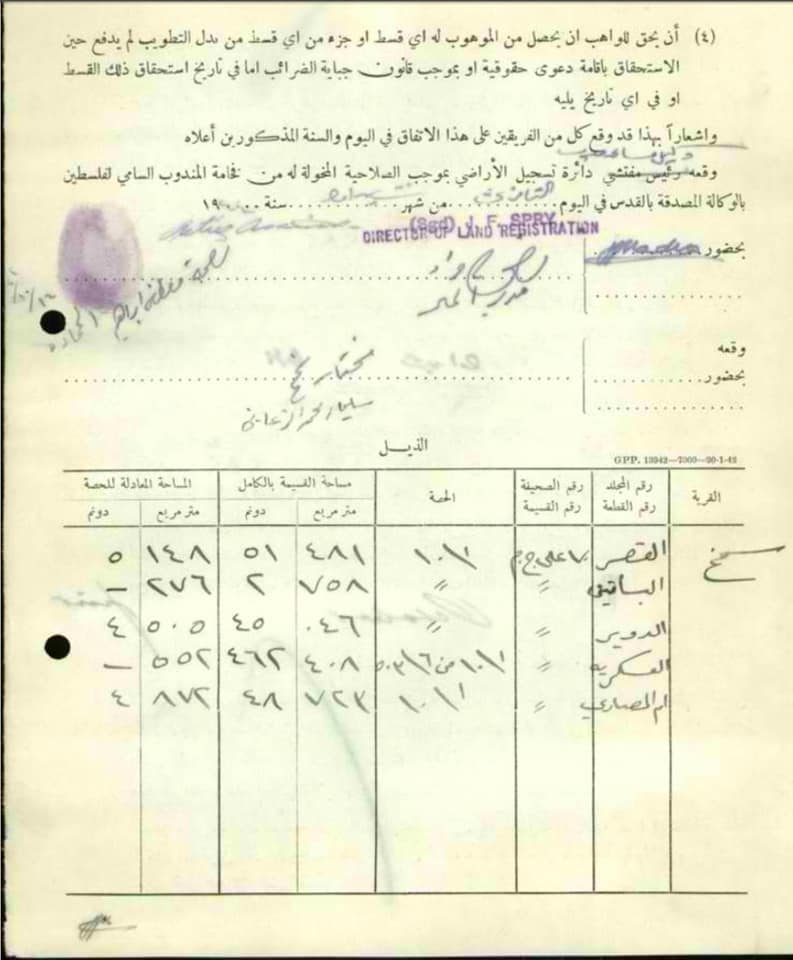 (٤) أن يحق للواهب ان يحصل من الموهوب له اي قسط او جزء من اي قسط من بدل التطويب لم يدفع حين
الاستحقاق باقامة دعوى حقوقية او بموجب قانون جباية الضرائب اما في تاريخ استحقاق ذلك القسط
او في اي تاريخ يليه
واشعاراً بهذا قد وقع كل من الفريقين على هذا الاتفاق في اليوم والسنة المذكورين أعلاه
وقعه رئيس مفتشي دائرة تسجيل الأراضي بموجب الصلاحية المخولة له من فخامة المندوب السامي لفلسطين
بالوكالة المصدقة بالقدس في اليوم من شهر سنة ١٩٠
(Sgd) J. F. SPRY
DIRECTOR OF LAND REGISTRATION
بحضور
وقعه
بحضور
مختار سمخ
الذيل
GPP. 13942—7000—20-1-42
القرية | رقم المجلد رقم القطعة | رقم الصحيفة رقم القسيمة | الحصة | مساحة القسيمة بالكامل متر مربع دونم | المساحة المعادلة للحصة متر مربع دونم
سمخ القصر ١٠/١ ٤٨١ ٥١ ١٤٨ ٥
البساتين 〃 〃 ٧٥٨ ٢ ٢٧٦ —
الدوير 〃 〃 ٠٤٦ ٤٥ ٥٠٥ ٤
العسكرية 〃 ٤٠٨ ٤٦٢ ٥٥٢ —
ام المصاري 〃 ١٠/١ ٧٢٣ ٤٨ ٨٧٢ ٤